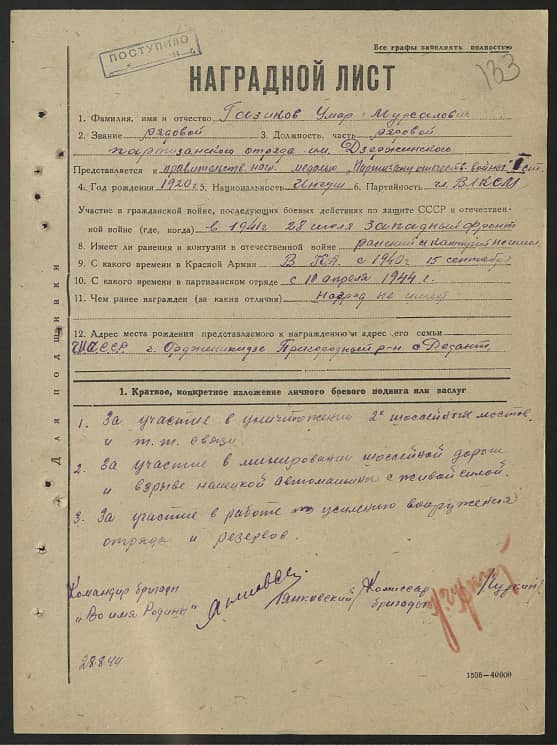 ПОСТУПИЛО
Все графы заполнять полностью
133
НАГРАДНОЙ ЛИСТ
1. Фамилия, имя и отчество Умар Мурсалович
2. Звание рядовой 3. Должность, часть рядовой
партизанского отряда им. Дзержинского
Представляется к правительств. наг. медалью Партизану отечеств. войны II ст.
4. Год рождения 1920 г. 5. Национальность Ингуш 6. Партийность чл. ВЛКСМ
Участие в гражданской войне, последующих боевых действиях по защите СССР и отечествен-
ной войне (где, когда) в 1941 г 28 июля Западный фронт
8. Имеет ли ранения и контузии в отечественной войне ранений и контузий не имел
9. С какого времени в Красной Армии В с 1940 г 15 сентября
10. С какого времени в партизанском отряде с 10 апреля 1944 г.
11. Чем ранее награжден (за какие отличия) Наград не имеет
12. Адрес места рождения представляемого к награждению и адрес его семьи
ЧИАССР г. Орджоникидзе Пригородный р-н
Для подшивки
1. Краткое, конкретное изложение личного боевого подвига или заслуг
1. За участие в уничтожении 2х шоссейных мостов
и т.т. связи.
2. За участие в минировании шоссейной дороги
и взрыве немецкой автомашины с живой силой.
3. За участие в работе по усилению вооружения
отряда и резервов.
Командир бригады
"Во имя Родины" /Янковский/ Комиссар
бригады
28.8.44
1508—40000